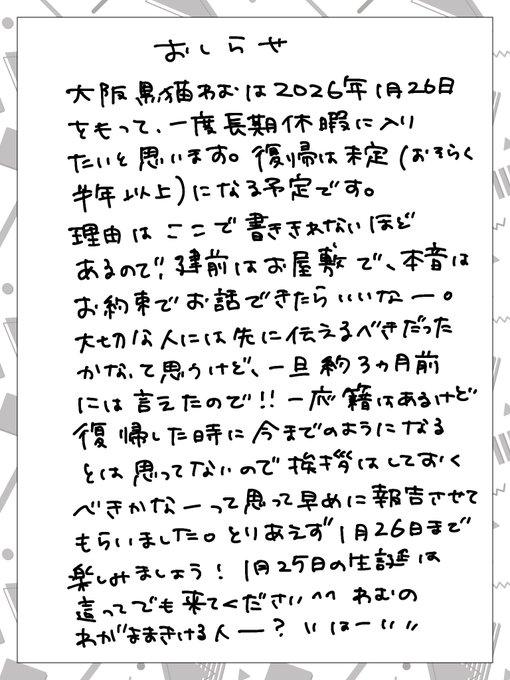 おしらせ
大阪黒猫ねむは2026年1月26日
をもって、一度長期休暇に入り
たいと思います。復帰は未定(おそらく
半年以上)になる予定です。
理由はここで書ききれないほど
あるので!建前はお屋敷で、本音は
お約束でお話できたらいいなー。
大切な人には先に伝えるべきだった
かな、て思うけど、一旦約3ヵ月前
には言えたので!!一応籍はあるけど
復帰した時に今までのようになる
とは思ってないので挨拶はしておく
べきかなーって思って早めに報告させて
もらいました。とりあえず1月26日まで
楽しみましょう!1月25日の生誕は
這ってでも来てください^^ ねむの
わがままきける人ー?いはーいい